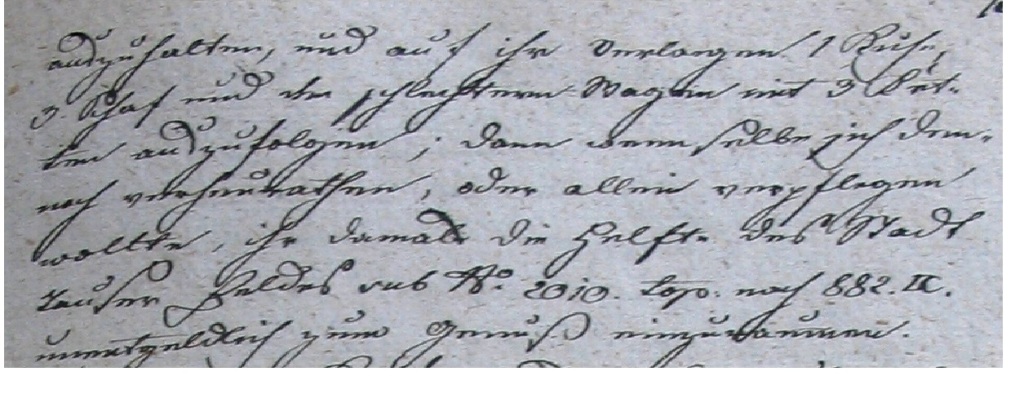 auszuhalten, und auf ihr Verlangen 1 Kuhe,
3 Schaf und den schlechtern Wagen mit 3 Bet-
ten auszufolgen; dann wenn selbe sich dem-
nach verheurathen, oder allein verpflegen
wollte, ihr damals die Helfte des Stadt
Feldes sub No. 2010. top: noch 882. IC.
unentgeldlich zum Genuß einzuraumen.